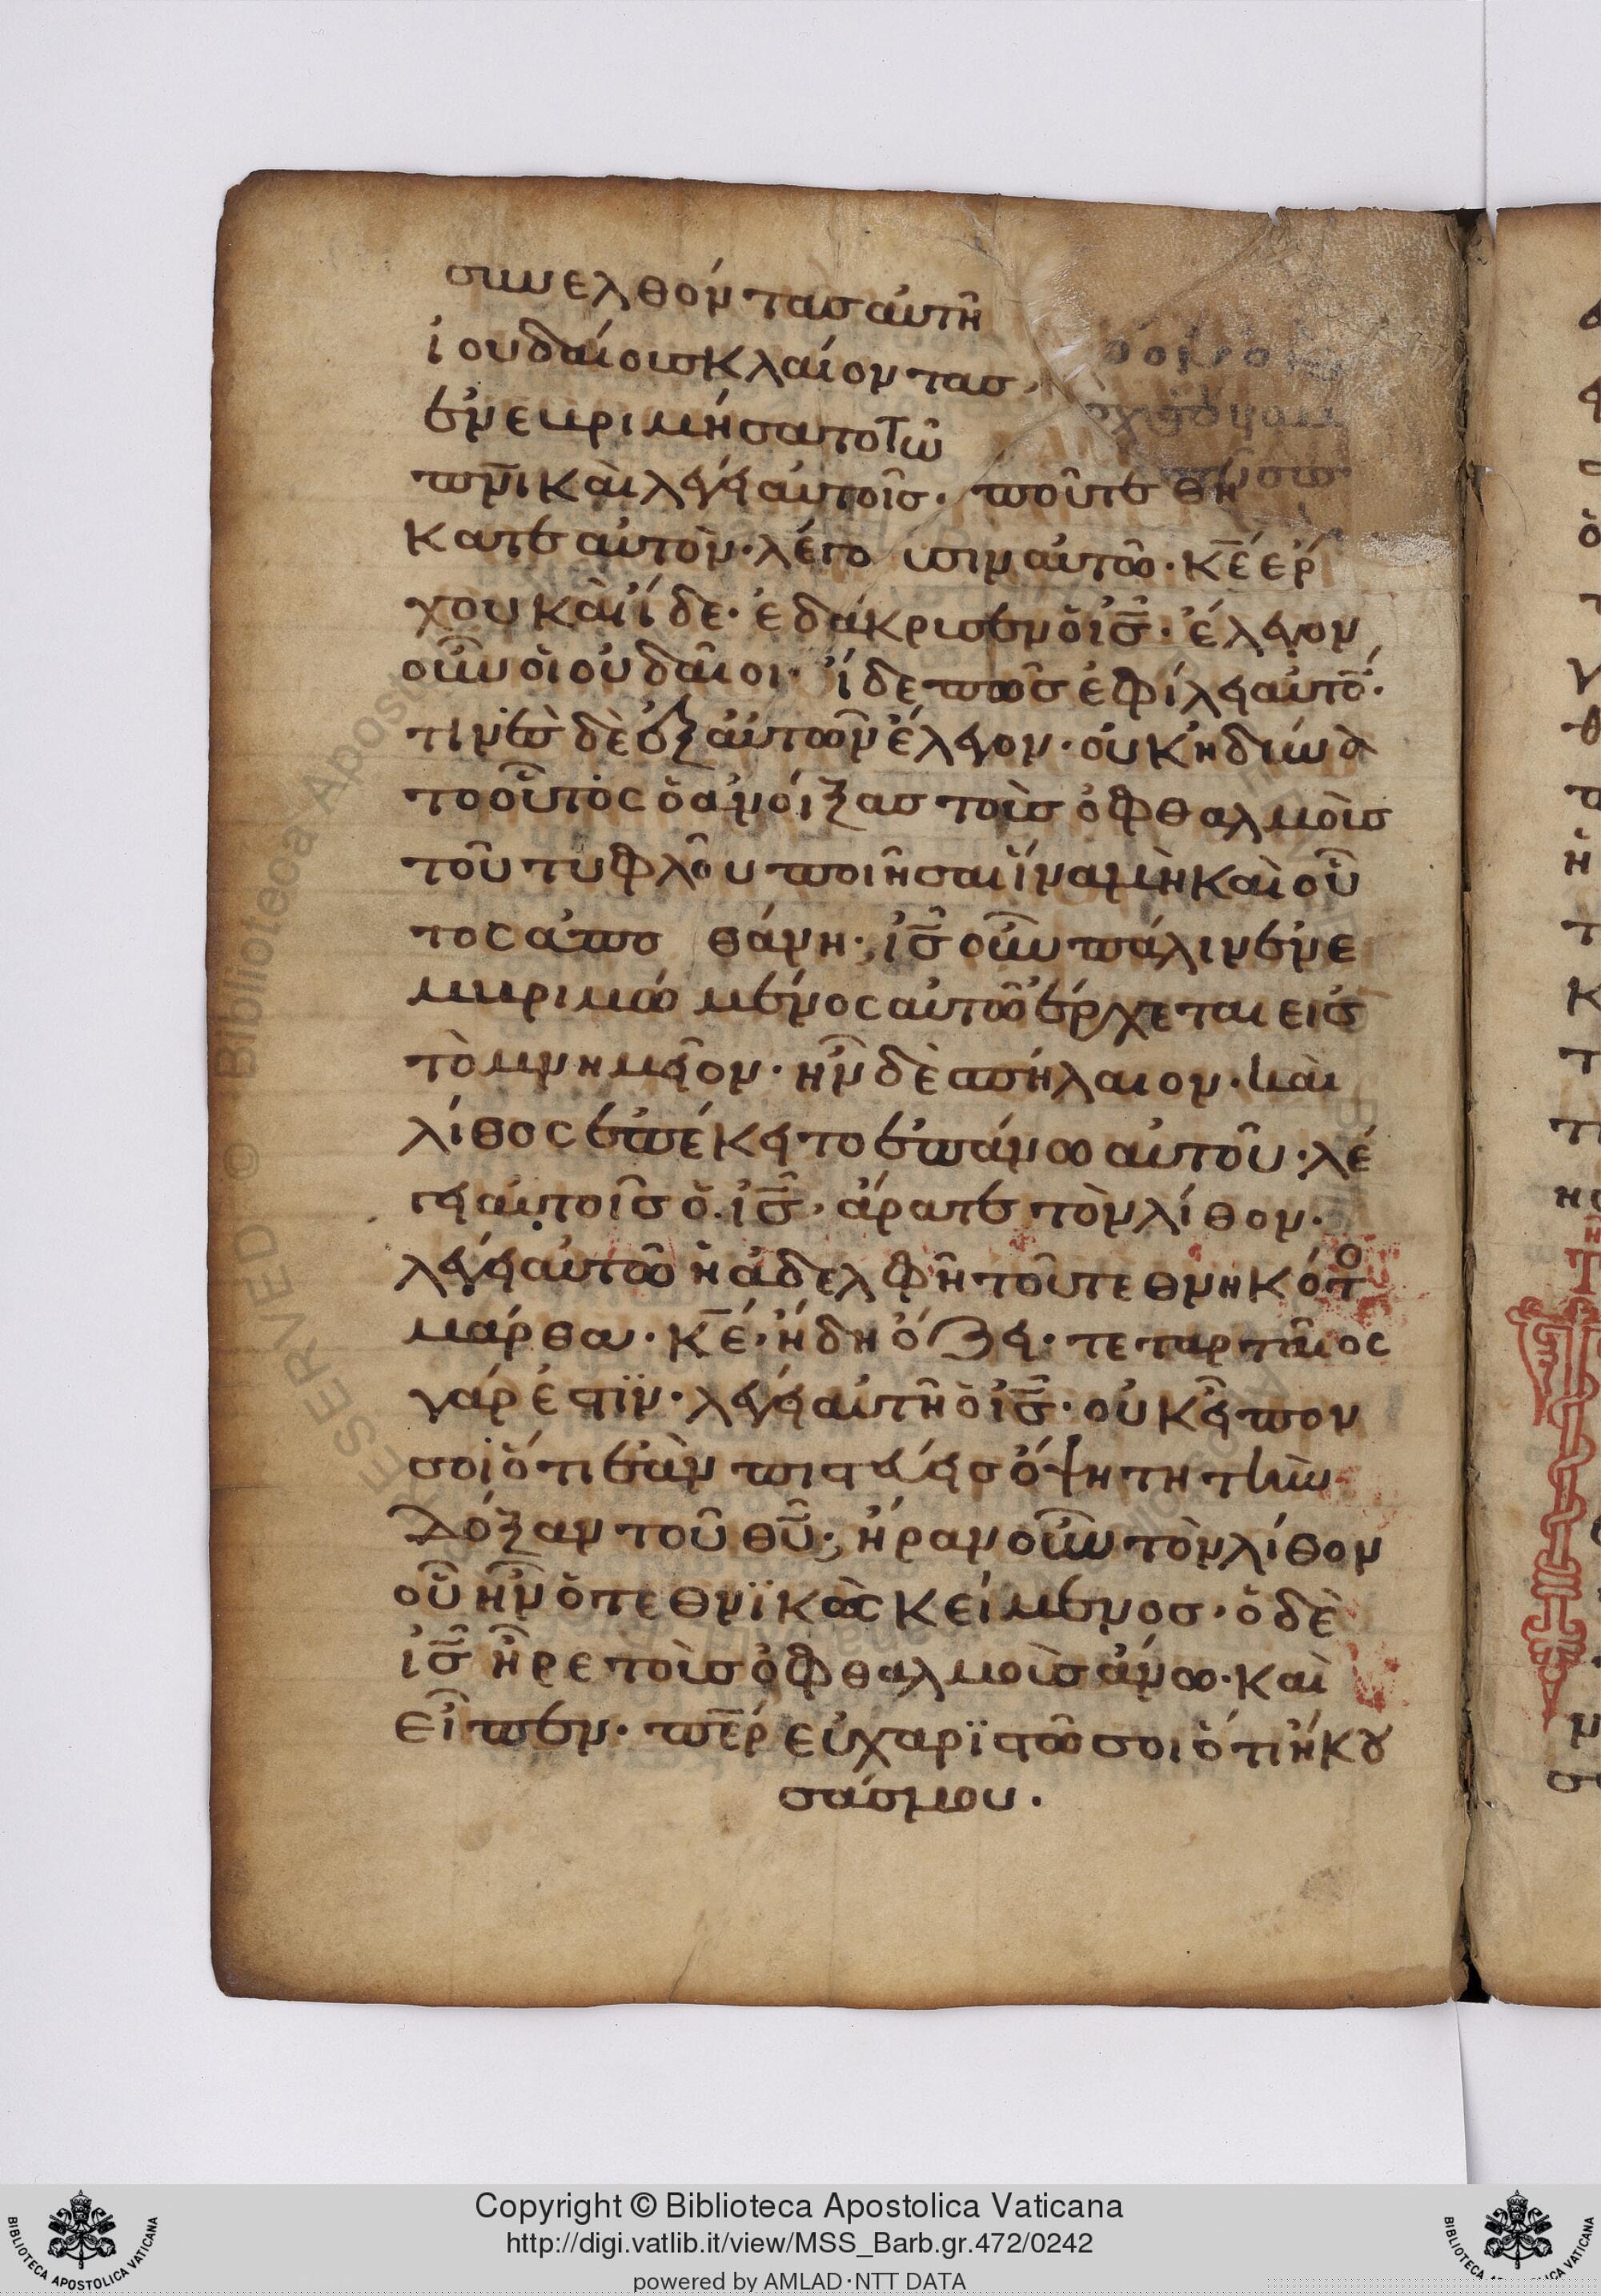 συνελθόντας αὐτῆ
ἰουδαίοισ κλαίοντας·
ἐνευριμήσατο τῶ
πνϊ καὶ λέγει αὐτοῖς· ποῦ τεθή
κατε αὐτὸν· λέγο υσιν αὐτῶ· κε̄ ἔρ
χου καὶ ἴδε· ἐδάκρισεν ὁ ισ̄· ἔλεγον
οὖν οἱ ουδαῖοι· ἴδε πῶς ἐφίλει αὐτο̄·
τινὲσ δὲ ἐξ αὐτῶν ἔλεγον· οὐκ ἠδιώα
το οὗτος ὁ ἀνοίξας τοὺσ ὀφθαλμοὺσ
τοῦ τυφλοῦ ποιῆσαι ἵνα μὴ καὶ οὗ
τος ἀπο θάνη· ισ̄ οὖν πάλιν ἐνε
μυριμώμενος αὐτῶ ἔρχεται εἰσ
τὸ μνημεῖον· ἦν δὲ σπήλαιον· καὶ
λίθος ἐπέκειτο ἐπάνω αὐτοῦ· λέ
γει αὐτοῖσ ὁ ισ̄· ἄρατε τὸν λίθον·
λέγει αὐτῶ ἡ ἀδελφῆ τοῦ τεθνηκότο
μάρθα· κε̄· ἤδη ὄζει· τεταρταῖος
γάρ ἐστϊν· λέγει αὐτῆ ὁ ισ̄· οὐκ εἶπον
σοὶ ὅτι ἐὰν πιστεύεισ ὄψη τη τὴν
δόξαν τοῦ θῡ· ἦραν οὖν τὸν λίθον
οὗ ἦν ὁ τεθνϊκὼς κείμενοσ· ὁ δὲ
ισ̄ ἦρε τοὺσ ὀφθαλμοὺσ ἄνω· καὶ
εἶπεν· περ̄ εὐχαρϊστῶ σοι ὅτι ἤκου
σάσ μου·
Copyright © Biblioteca Apostolica Vaticana
http://digi.vatlib.it/view/MSS_Barb.gr.472/0242
powered by AMLAD·NTT DATA